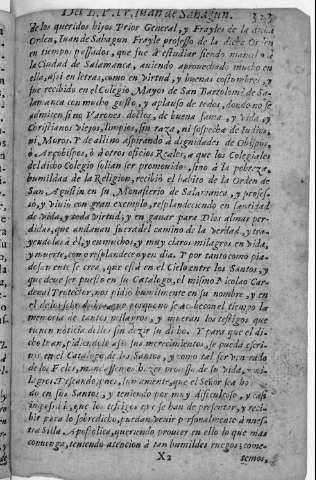 Del B. P. Fr. Iuan de Sahagun.
de los queridos hijos Prior General, y Frayles de la dicha
Orden, Iuan de Sahagun Frayle professo de la dicha Orden
en tiempo passados, que fue à estudiar siendo mancebo à
la Ciudad de Salamanca, auiendo aprouechado mucho en
ella, assi en letras, como en virtud, y buenas costumbres, y
fue recibido en el Colegio Mayor de San Bartolomè de Sa-
lamanca con mucho gusto, y aplauso de todos, donde no se
admiten sino Varones doctos, de buena fama, y vida, y
Christianos viejos, limpios, sin raza, ni sospecha de Iudios,
ni Moros. Y de alli no aspirando à dignidades de Obispos,
ò Arçobispos, ò à otros oficios Reales, à que los Colegiales
del dicho Colegio solian ser promouidos, sino à la pobreza,
humildad de la Religion, recibiò el habito de la Orden de
San Agustin en su Monasterio de Salamanca, y professò,
y viuiò con gran exemplo, resplandeciendo en santidad
de vida, y toda virtud; y en ganar para Dios almas per-
didas, que andauan fuera del camino de la verdad, y tra-
yendolas à èl, y en muchos, y muy claros milagros en vida,
y muerte, como resplandece oy en dia. Y por tanto como pia-
dosamente se crea, que està en el Cielo entre los Santos, y
que deue ser puesto en su Catalogo, el mismo Nicolao Car-
denal Protector, nos pidiò humilmente en su nombre, y en
el de los dichos que porque no se acabe con el tiempo la
memoria de tantos milagros, y mueran los testigos que
tienen noticia dellos sin dezir su dicho. Y para que el di-
cho Iuan, pidiendolo assi sus merecimientos, se pueda escri-
uir en el Catalogo de los Santos, y como tal ser venerado
de los Fieles, mandassemos hazer processo de su vida, y mi-
lagros. Deseando pues, sumamente, que el Señor sea loa-
do en sus Santos, y teniendo por muy dificultoso, y casi
impossible, que los testigos que se han de presentar, y reci-
bir para lo sobredicho, puedan venir personalmente à nues-
tra Silla Apostolica, queriendo proueer en ello lo que mas
conuenga, teniendo atencion à tan humildes ruegos; come-
X2 temos,